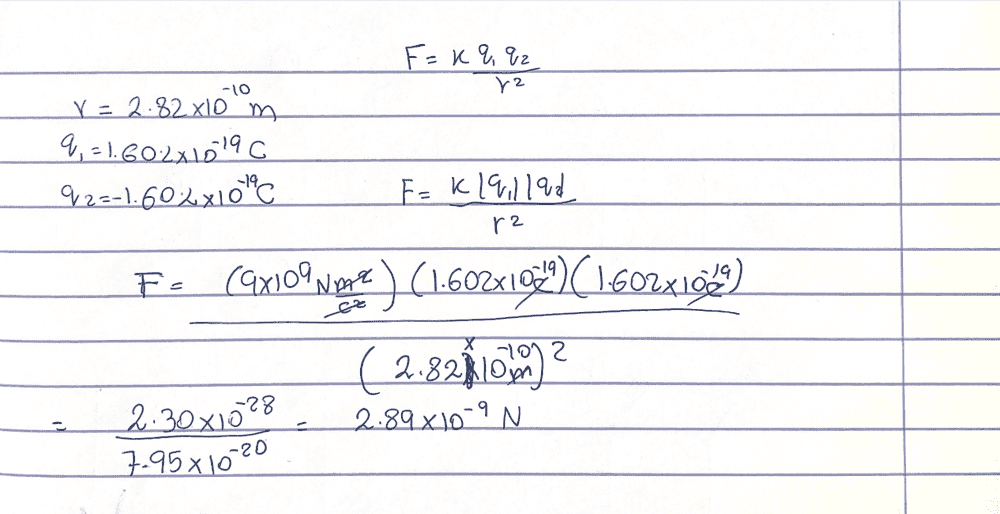 F = K q₁ q₂ / r²
r = 2.82 × 10⁻¹⁰ m
q₁ = 1.602 × 10⁻¹⁹ C
q₂ = -1.602 × 10⁻¹⁹ C
F = K |q₁| |q₂| / r²
F = (9×10⁹ N m²/c²) (1.602×10⁻¹⁹ c) (1.602×10⁻¹⁹ c) / (2.82 × 10⁻¹⁰ m)²
= 2.30×10⁻²⁸ / 7.95×10⁻²⁰ = 2.89×10⁻⁹ N